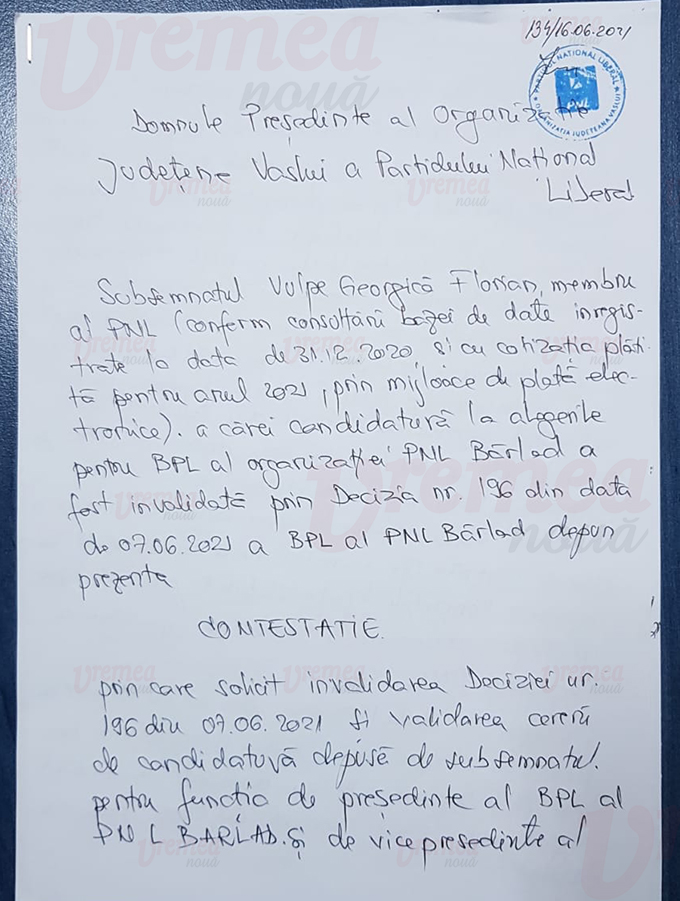 134/16.06.2021
PARTIDUL NATIONAL LIBERAL
PNL
ORGANIZATIA JUDETEANA VASLUI
Domnule Președinte al Organizație
Județene Vaslui a Partidului Național
Liberal
Subsemnatul Vulpe Georgică Florian, membru
al PNL (conform consultării bazei de date înregis-
trate la data de 31.12.2020, și cu cotizația plăti-
tă pentru anul 2021, prin mijloace de plată elec-
tronice). a cărei candidatură la alegerile
pentru BPL al organizației PNL Bârlad a
fost invalidată prin Decizia nr. 196 din data
de 07.06.2021 a BPL al PNL Bârlad depun
prezenta
CONTESTATIE.
prin care solicit invalidarea Deciziei nr.
196 din 07.06.2021 și validarea cererii
de candidatură depusă de subsemnatul.
pentru funcția de președinte al BPL al
PNL BARLAD. și de vicepreședinte al
Vremea
nouă